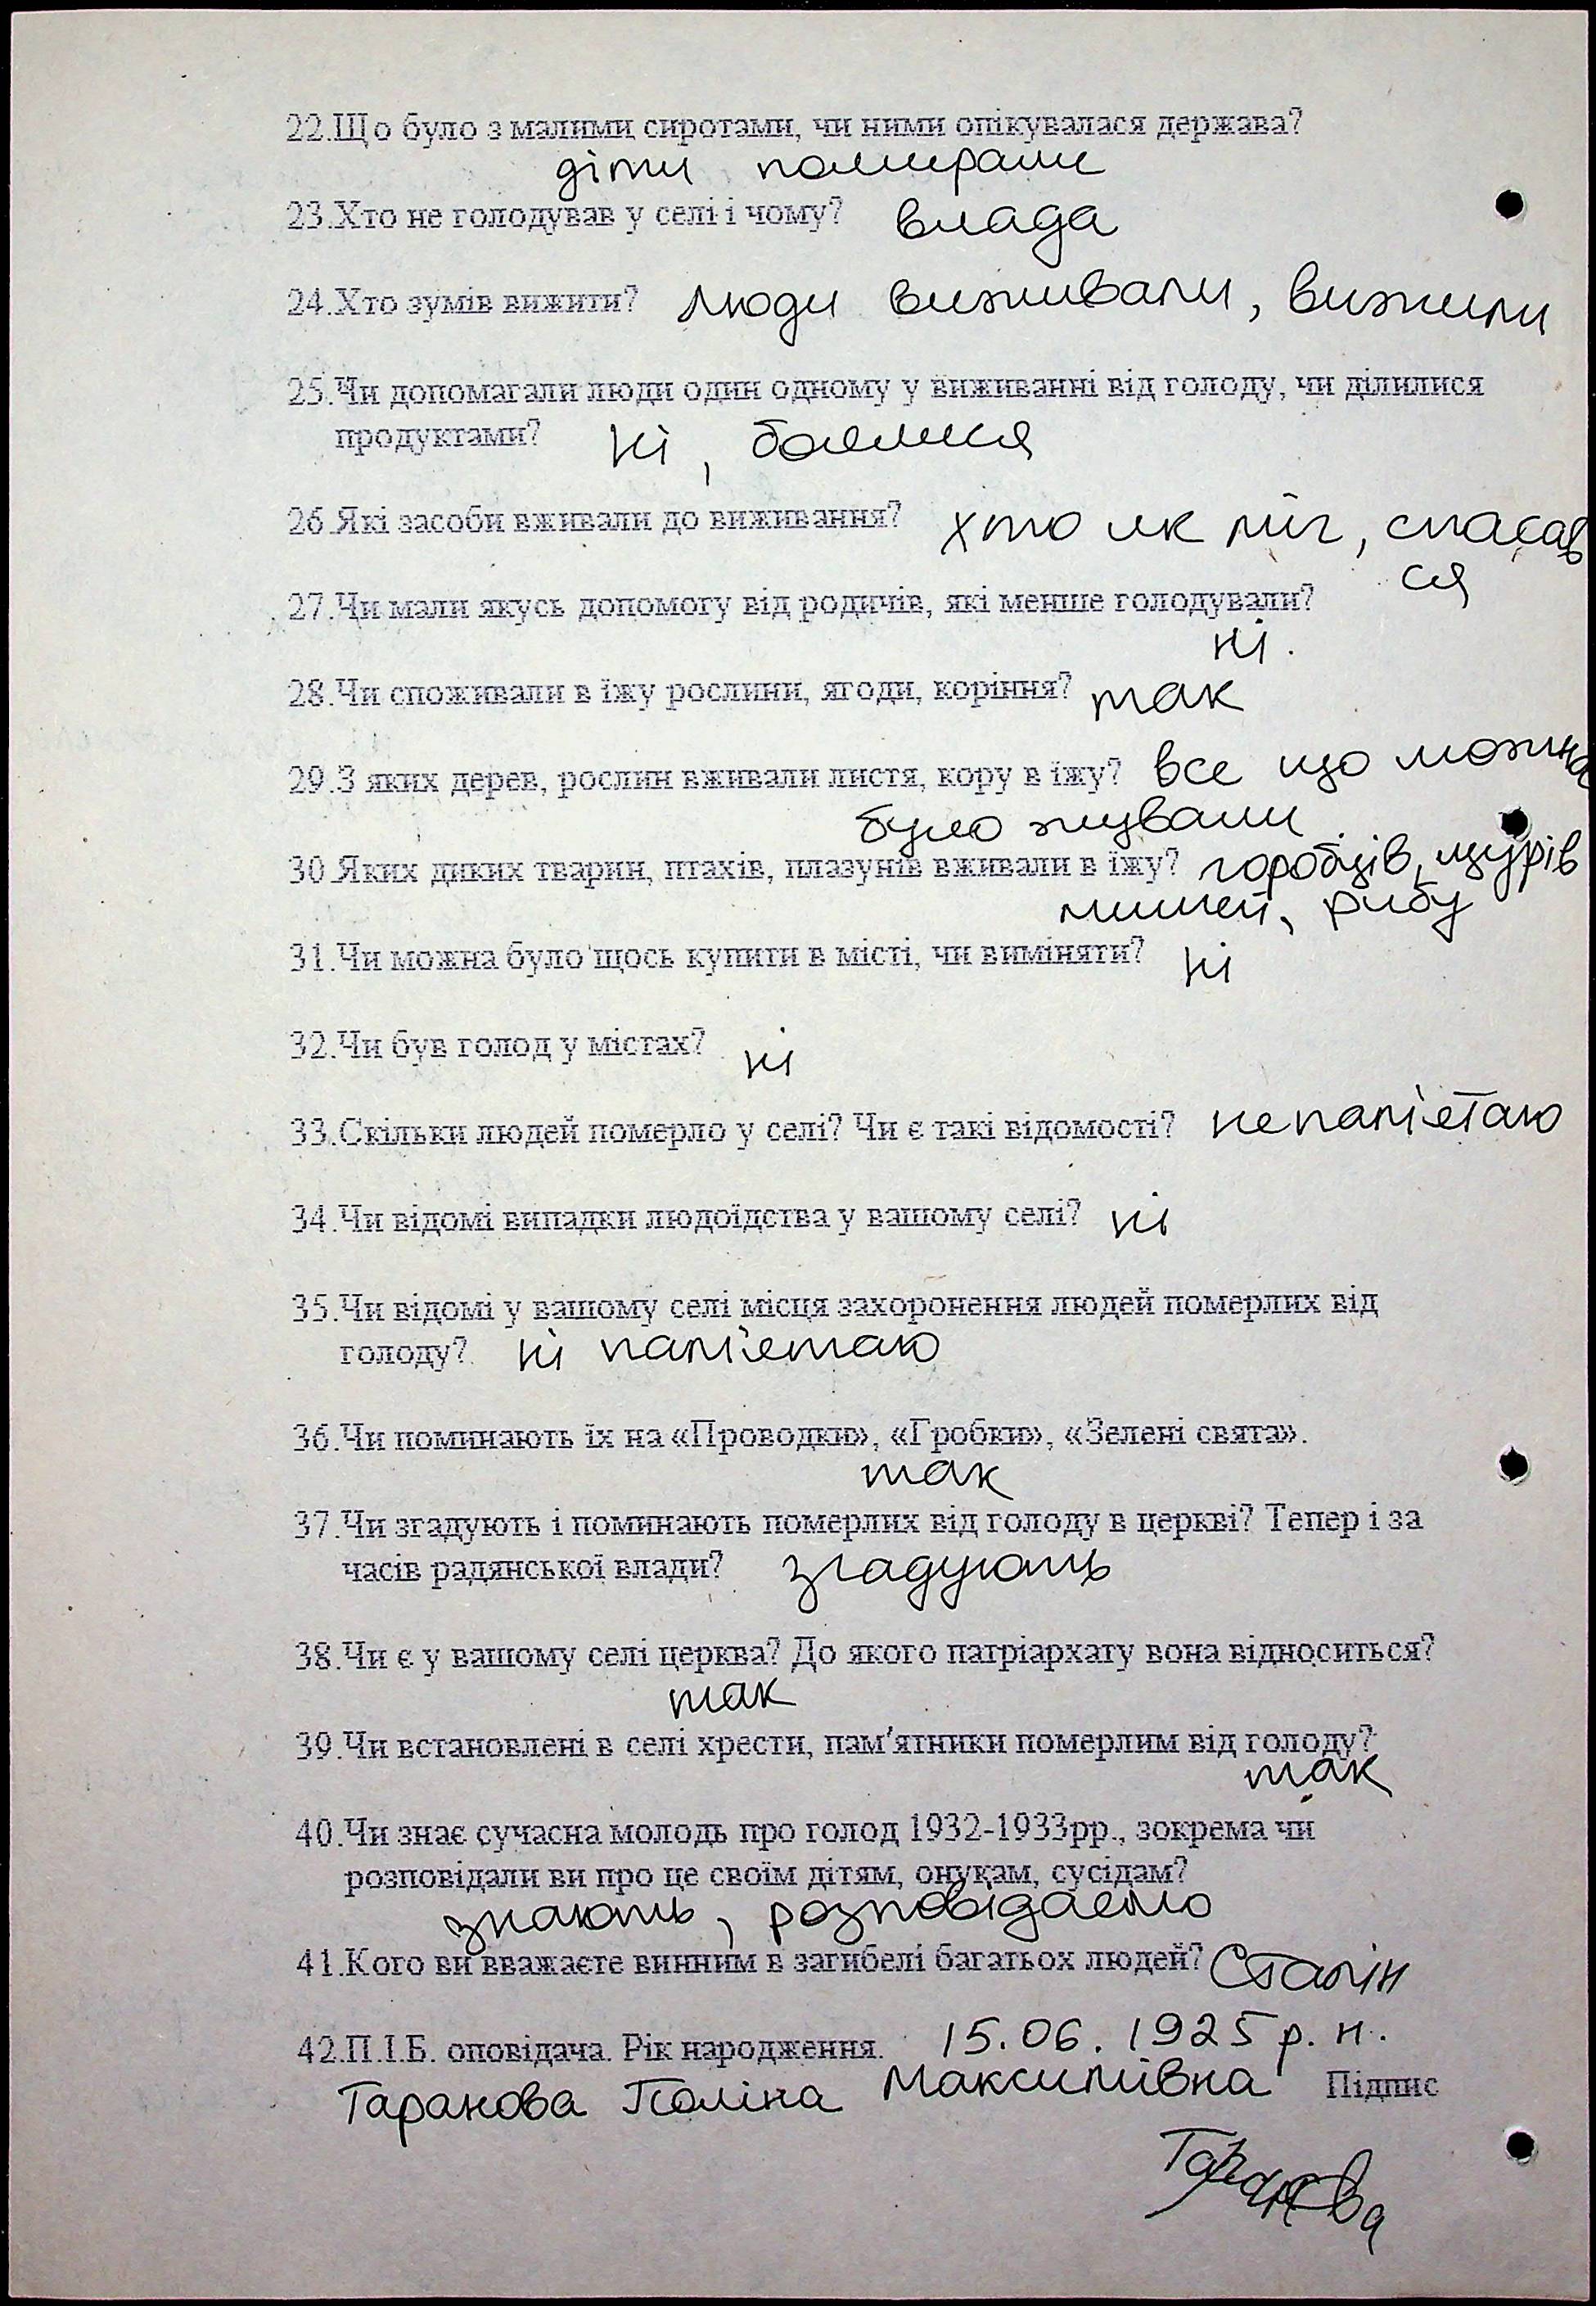 22.Що було з малими сиротами, чи ними опікувалася держава?
діти помирали
23.Хто не голодував у селі і чому? влада
24.Хто зумів вижити? люди виживали, вижили
25.Чи допомагали люди один одному у виживанні від голоду, чи ділилися
продуктами? ні, боялися
26.Які засоби вживали до виживання? хто як міг, спасав
ся
27.Чи мали якусь допомогу від родичів, які менше голодували?
ні.
28.Чи споживали в їжу рослини, ягоди, коріння? так
29.З яких дерев, рослин вживали листя, кору в їжу? все що можна
було жували
30.Яких диких тварин, птахів, плазунів вживали в їжу? горобців, щурів
мишей, рибу
31.Чи можна було щось купити в місті, чи виміняти? ні
32.Чи був голод у містах? ні
33.Скільки людей померло у селі? Чи є такі відомості? не пам'ятаю
34.Чи відомі випадки людоїдства у вашому селі? ні
35.Чи відомі у вашому селі місця захоронення людей померлих від
голоду? ні пам'ятаю
36.Чи поминають їх на «Проводки», «Гробки», «Зелені свята».
так
37.Чи згадують і поминають померлих від голоду в церкві? Тепер і за
часів радянської влади? згадують
38.Чи є у вашому селі церква? До якого патріархату вона відноситься?
так
39.Чи встановлені в селі хрести, пам'ятники померлим від голоду?
так
40.Чи знає сучасна молодь про голод 1932-1933рр., зокрема чи
розповідали ви про це своїм дітям, онукам, сусідам?
знають, розповідаємо
41.Кого ви вважаєте винним в загибелі багатьох людей? Сталін
42.П.І.Б. оповідача. Рік народження. 15.06.1925 р.н.
Таранова Поліна Максимівна Підпис
Таранова